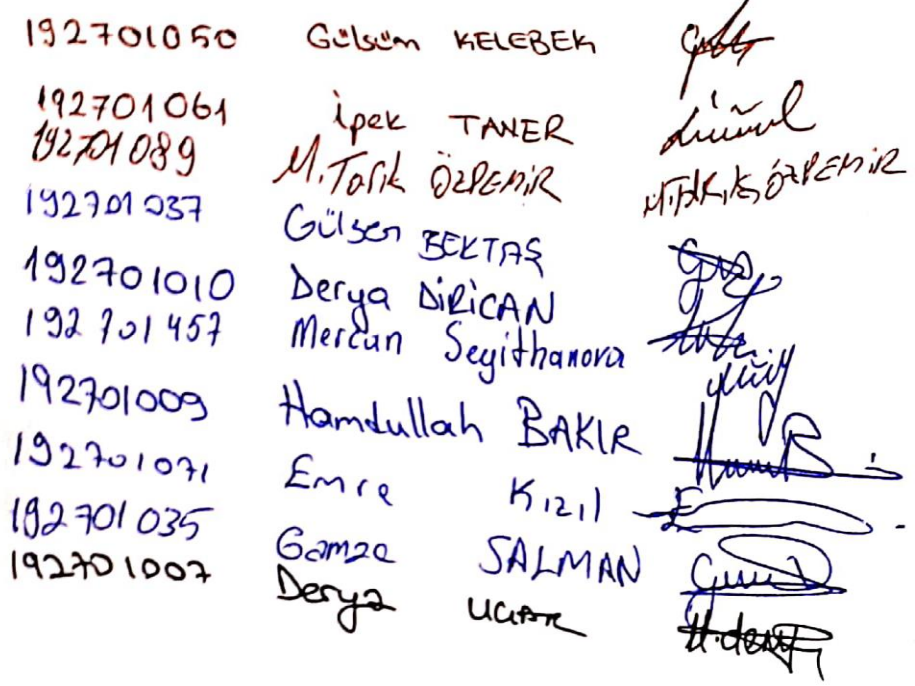 192701050 Gülsüm KELEBEK
192701061 İpek TANER
192701089 M. Tarik ÖZDEMİR M.TARIK ÖZDEMİR
192701037 Gülsen BEKTAŞ
192701010 Derya DİRİCAN
192701457 Mercan Seyithanova
192701009 Hamdullah BAKIR
192701071 Emre Kızıl
192701035 Gamze SALMAN
192701007 Derya UÇAR